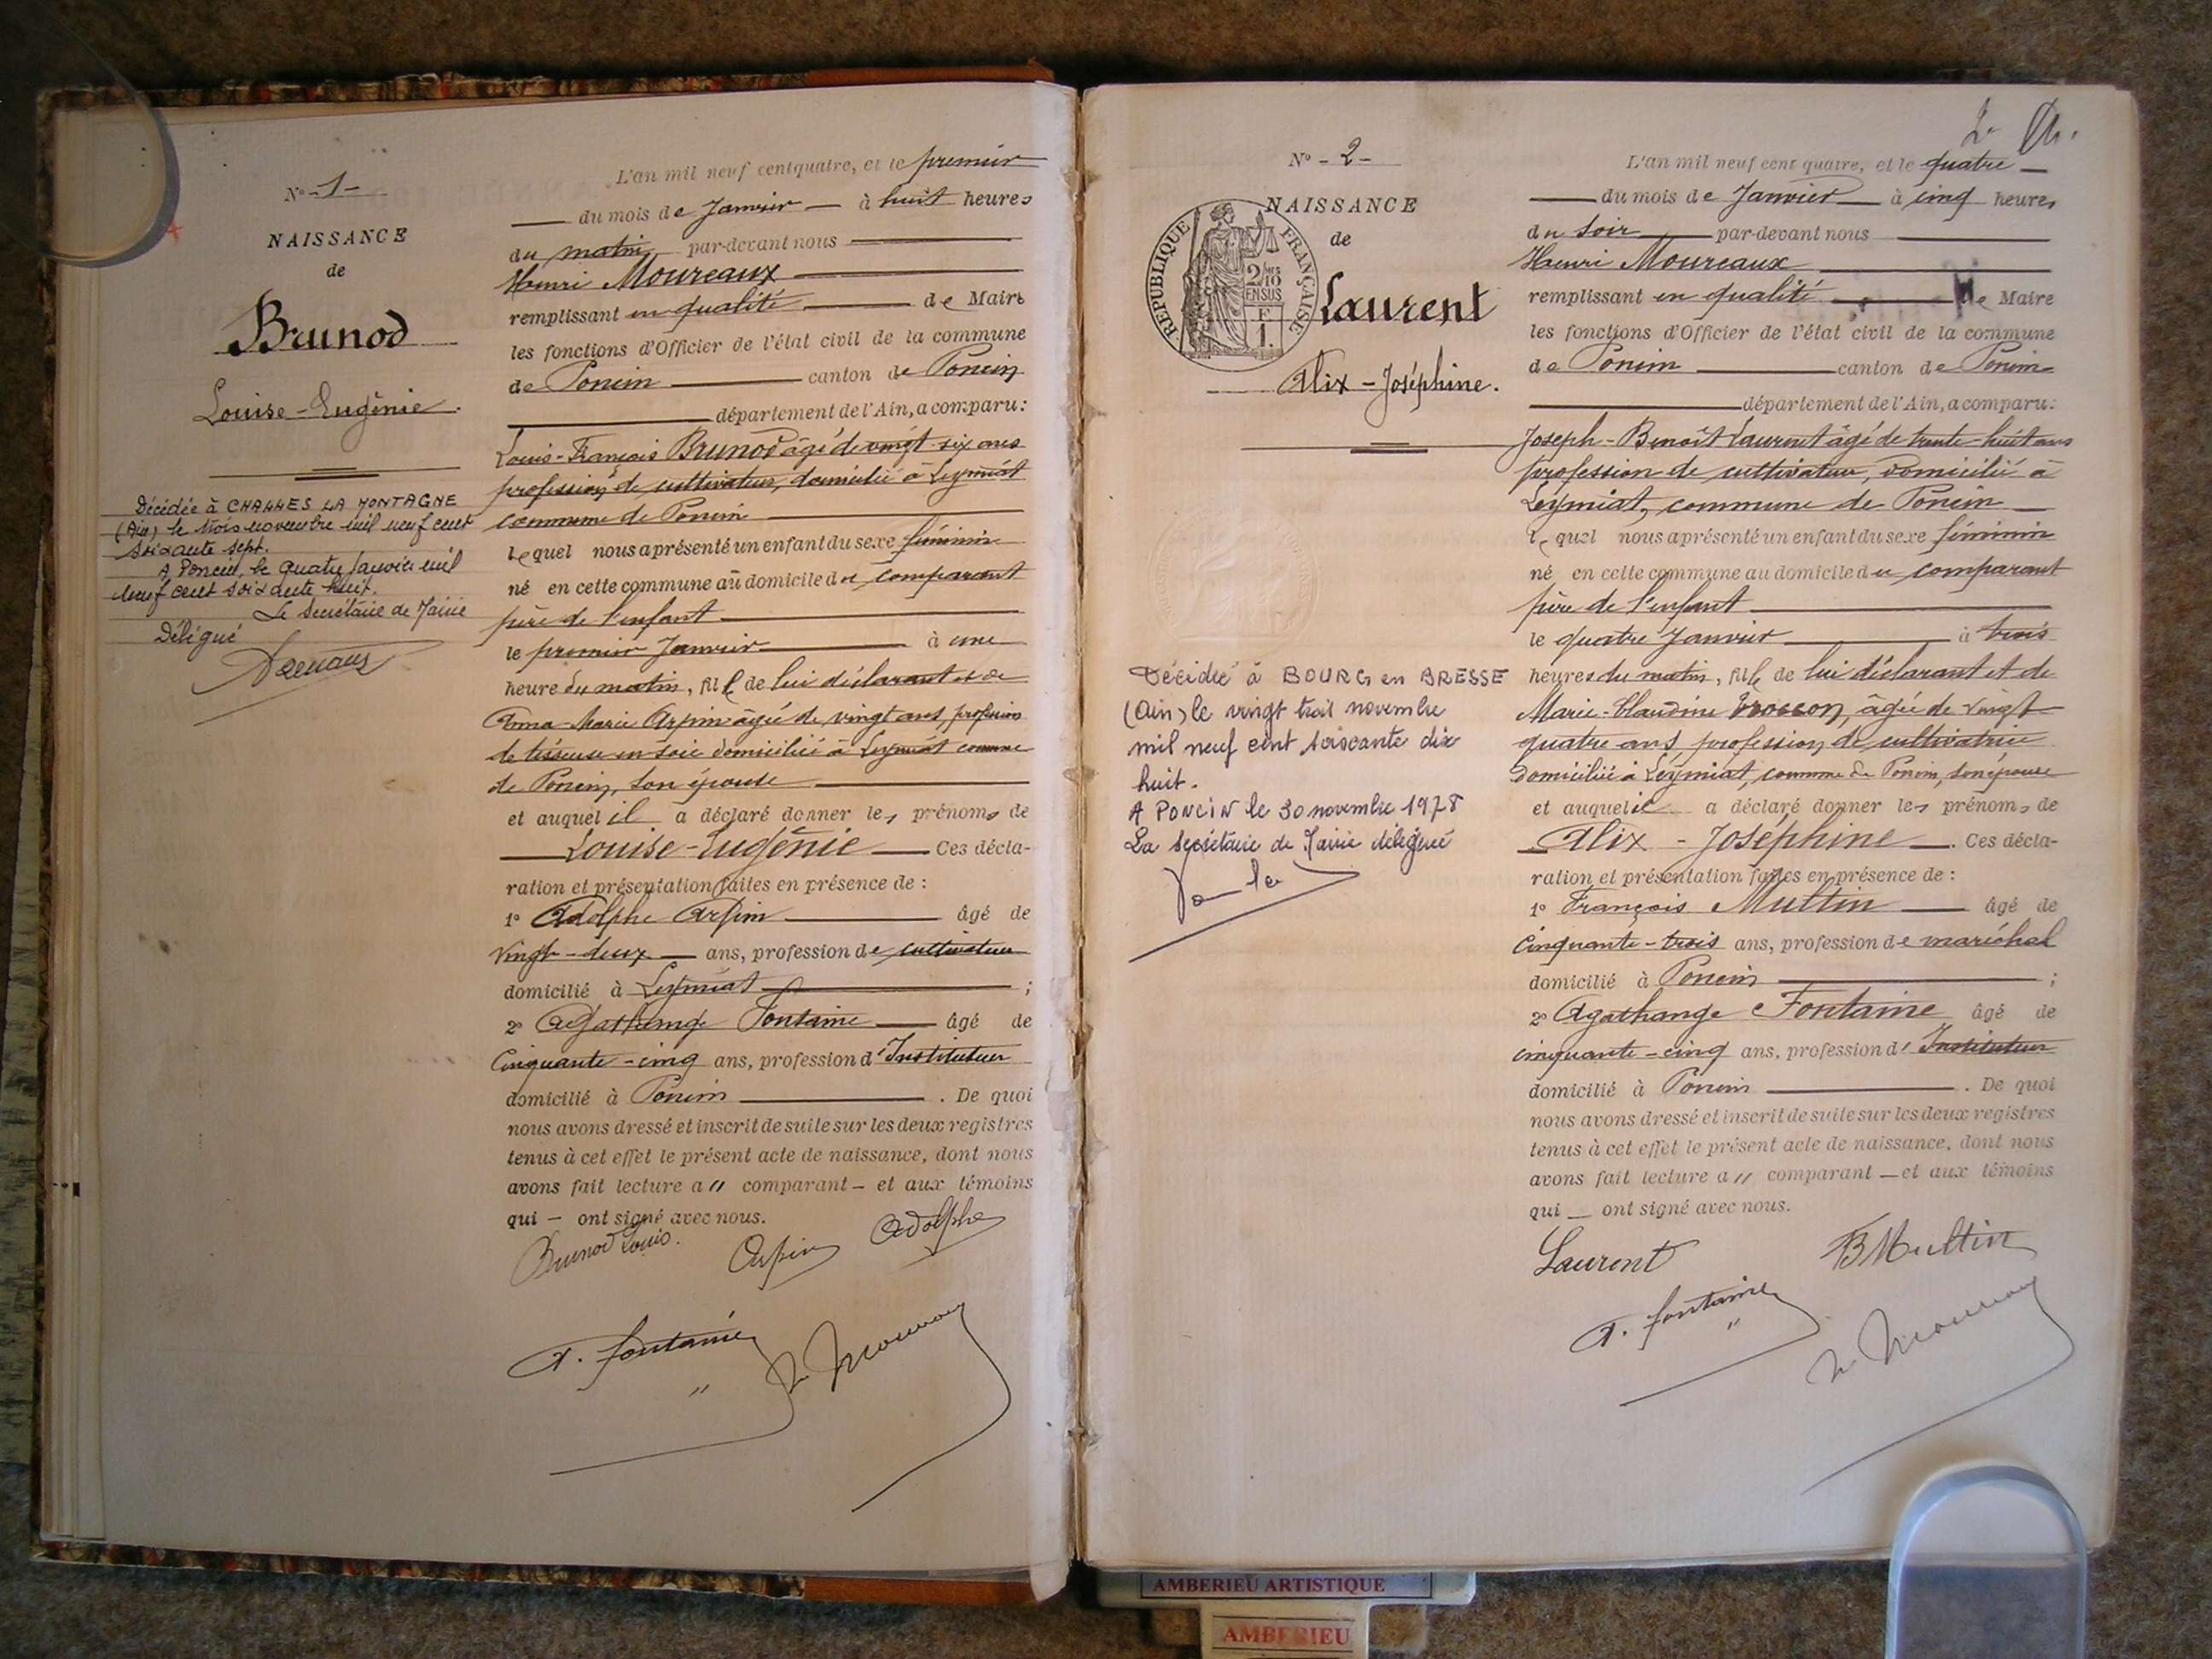 N° - 1 -
NAISSANCE
de
Brunod
Louise-Eugénie.
Décédée à CHALLES LA MONTAGNE
(Ain) le trois novembre mil neuf cent
soixante sept.
A Poncin, le quatre janvier mil
neuf cent soixante huit.
Le Secrétaire de Mairie
Délégué
L'an mil neuf cent quatre, et le premier
du mois de Janvier à huit heures
du matin par-devant nous
Henri Moureaux
remplissant en qualité de Maire
les fonctions d'Officier de l'état civil de la commune
de Poncin canton de Poncin
département de l'Ain, a comparu:
Louis-François Brunod âgé de vingt-six ans
profession de cultivateur, domicilié à Leymiat
commune de Poncin
Lequel nous a présenté un enfant du sexe féminin
né en cette commune au domicile du comparant
père de l'enfant
le premier Janvier à une
heure du matin, fille de lui déclarant et de
Anna-Marie Arpin âgée de vingt ans, profession
de tisseuse en soie domiciliée à Leymiat commune
de Poncin, son épouse
et auquel il a déclaré donner les prénoms de
Louise-Eugénie Ces décla-
ration et présentation faites en présence de :
1° Adolphe Arpin âgé de
vingt-deux ans, profession de cultivateur
domicilié à Leymiat ;
2° Agathange Fontaine âgé de
Cinquante-cinq ans, profession d'Instituteur
domicilié à Poncin . De quoi
nous avons dressé et inscrit de suite sur les deux registres
tenus à cet effet le présent acte de naissance, dont nous
avons fait lecture a " comparant - et aux témoins
qui - ont signé avec nous.
Brunod Louis. Arpin Adolphe
A. Fontaine H. Moureaux
2
N° - 2 -
NAISSANCE
de
RÉPUBLIQUE FRANÇAISE
2/10 EN SUS
F
1.
Laurent
Alix-Joséphine.
Décédée à BOURG en BRESSE
(Ain) le vingt trois novembre
mil neuf cent soixante dix
huit.
A PONCIN le 30 novembre 1978
La secrétaire de Mairie déléguée
L'an mil neuf cent quatre, et le quatre
du mois de Janvier à cinq heures
du soir par-devant nous
Henri Moureaux
remplissant en qualité de Maire
les fonctions d'Officier de l'état civil de la commune
de Poncin canton de Poncin
département de l'Ain, a comparu:
Joseph-Benoît Laurent âgé de trente-huit ans
profession de cultivateur, domicilié à
Leymiat, commune de Poncin
Lequel nous a présenté un enfant du sexe féminin
né en cette commune au domicile du comparant
père de l'enfant
le quatre Janvier à trois
heures du matin, fille de lui déclarant et de
Marie-Claudine âgée de vingt
quatre ans profession de cultivatrice
domiciliée à Leymiat, commune de Poncin, son épouse
et auquel il a déclaré donner les prénoms de
Alix - Joséphine . Ces décla-
ration et présentation faites en présence de :
1° François Multin âgé de
Cinquante-trois ans, profession de maréchal
domicilié à Poncin ;
2° Agathange Fontaine âgé de
cinquante-cinq ans, profession d'Instituteur
domicilié à Poncin . De quoi
nous avons dressé et inscrit de suite sur les deux registres
tenus à cet effet le présent acte de naissance, dont nous
avons fait lecture a " comparant - et aux témoins
qui - ont signé avec nous.
Laurent B Multin
A. Fontaine H. Moureaux
AMBERIEU ARTISTIQUE
AMBERIEU